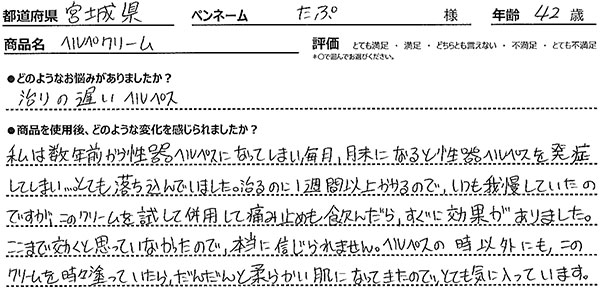 都道府県 宮城県 ペンネーム たぷ 様 年齢 42 歳
商品名 ヘルペクリーム 評価 とても満足 ・ 満足 ・ どちらとも言えない ・ 不満足 ・ とても不満足
*○で囲んでお選びください。
●どのようなお悩みがありましたか？
治りの遅いヘルペス
●商品を使用後、どのような変化を感じられましたか？
私は数年前から性器ヘルペスになってしまい、毎月、月末になると性器ヘルペスを発症
してしまい…とても落ち込んでいました。治るのに1週間以上かかるので、いつも我慢していたの
ですが、このクリームを試して併用して痛み止めも飲んだら、すぐに効果がありました。
ここまで効くと思っていなかたので、本当に信じられません。ヘルペスの時以外にも、この
クリームを時々塗っていたら、だんだんと柔らかい肌になってきたので、とても気に入っています。